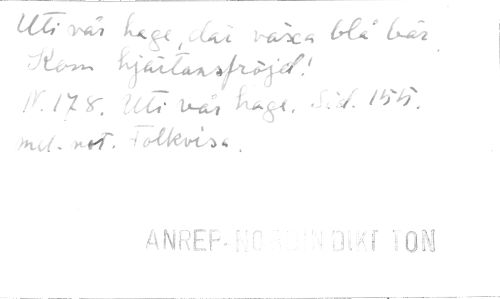 Uti vår hage, där växa blå bär.
Kom hjärtansfröjd!
N. 178. Uti vår hage. Sid. 155.
mel. not. Folkvisa.
ANREP-NORDIN DIKT TON